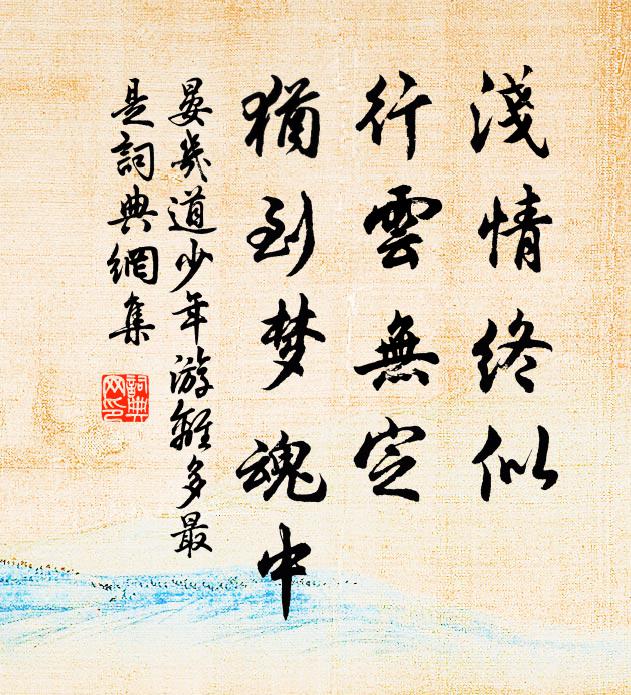 淺情終似
行雲無定
猶到梦魂中
晏幾道少年游離多最
是詞典網集
詞典網印